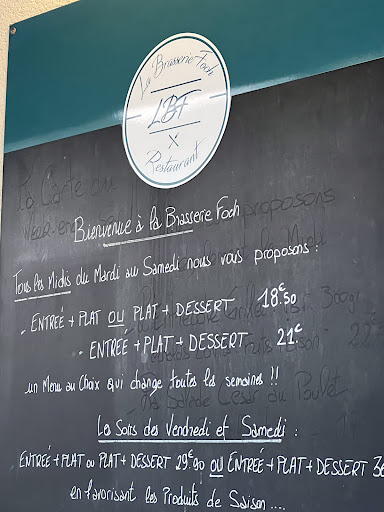 La Brasserie Foch
LBF
X
Restaurant
Bienvenue à la Brasserie Foch
Tous les Midis du Mardi au Samedi nous vous proposons :
- ENTRÉE + PLAT OU PLAT + DESSERT 18.€50
- ENTRÉE + PLAT + DESSERT 21.€
un Menu au Choix qui change toutes les semaines !!
Les Soirs des Vendredi et Samedi :
ENTRÉE + PLAT ou PLAT + DESSERT 29€90 OU ENTRÉE + PLAT + DESSERT
en favorisant les Produits de Saison ....